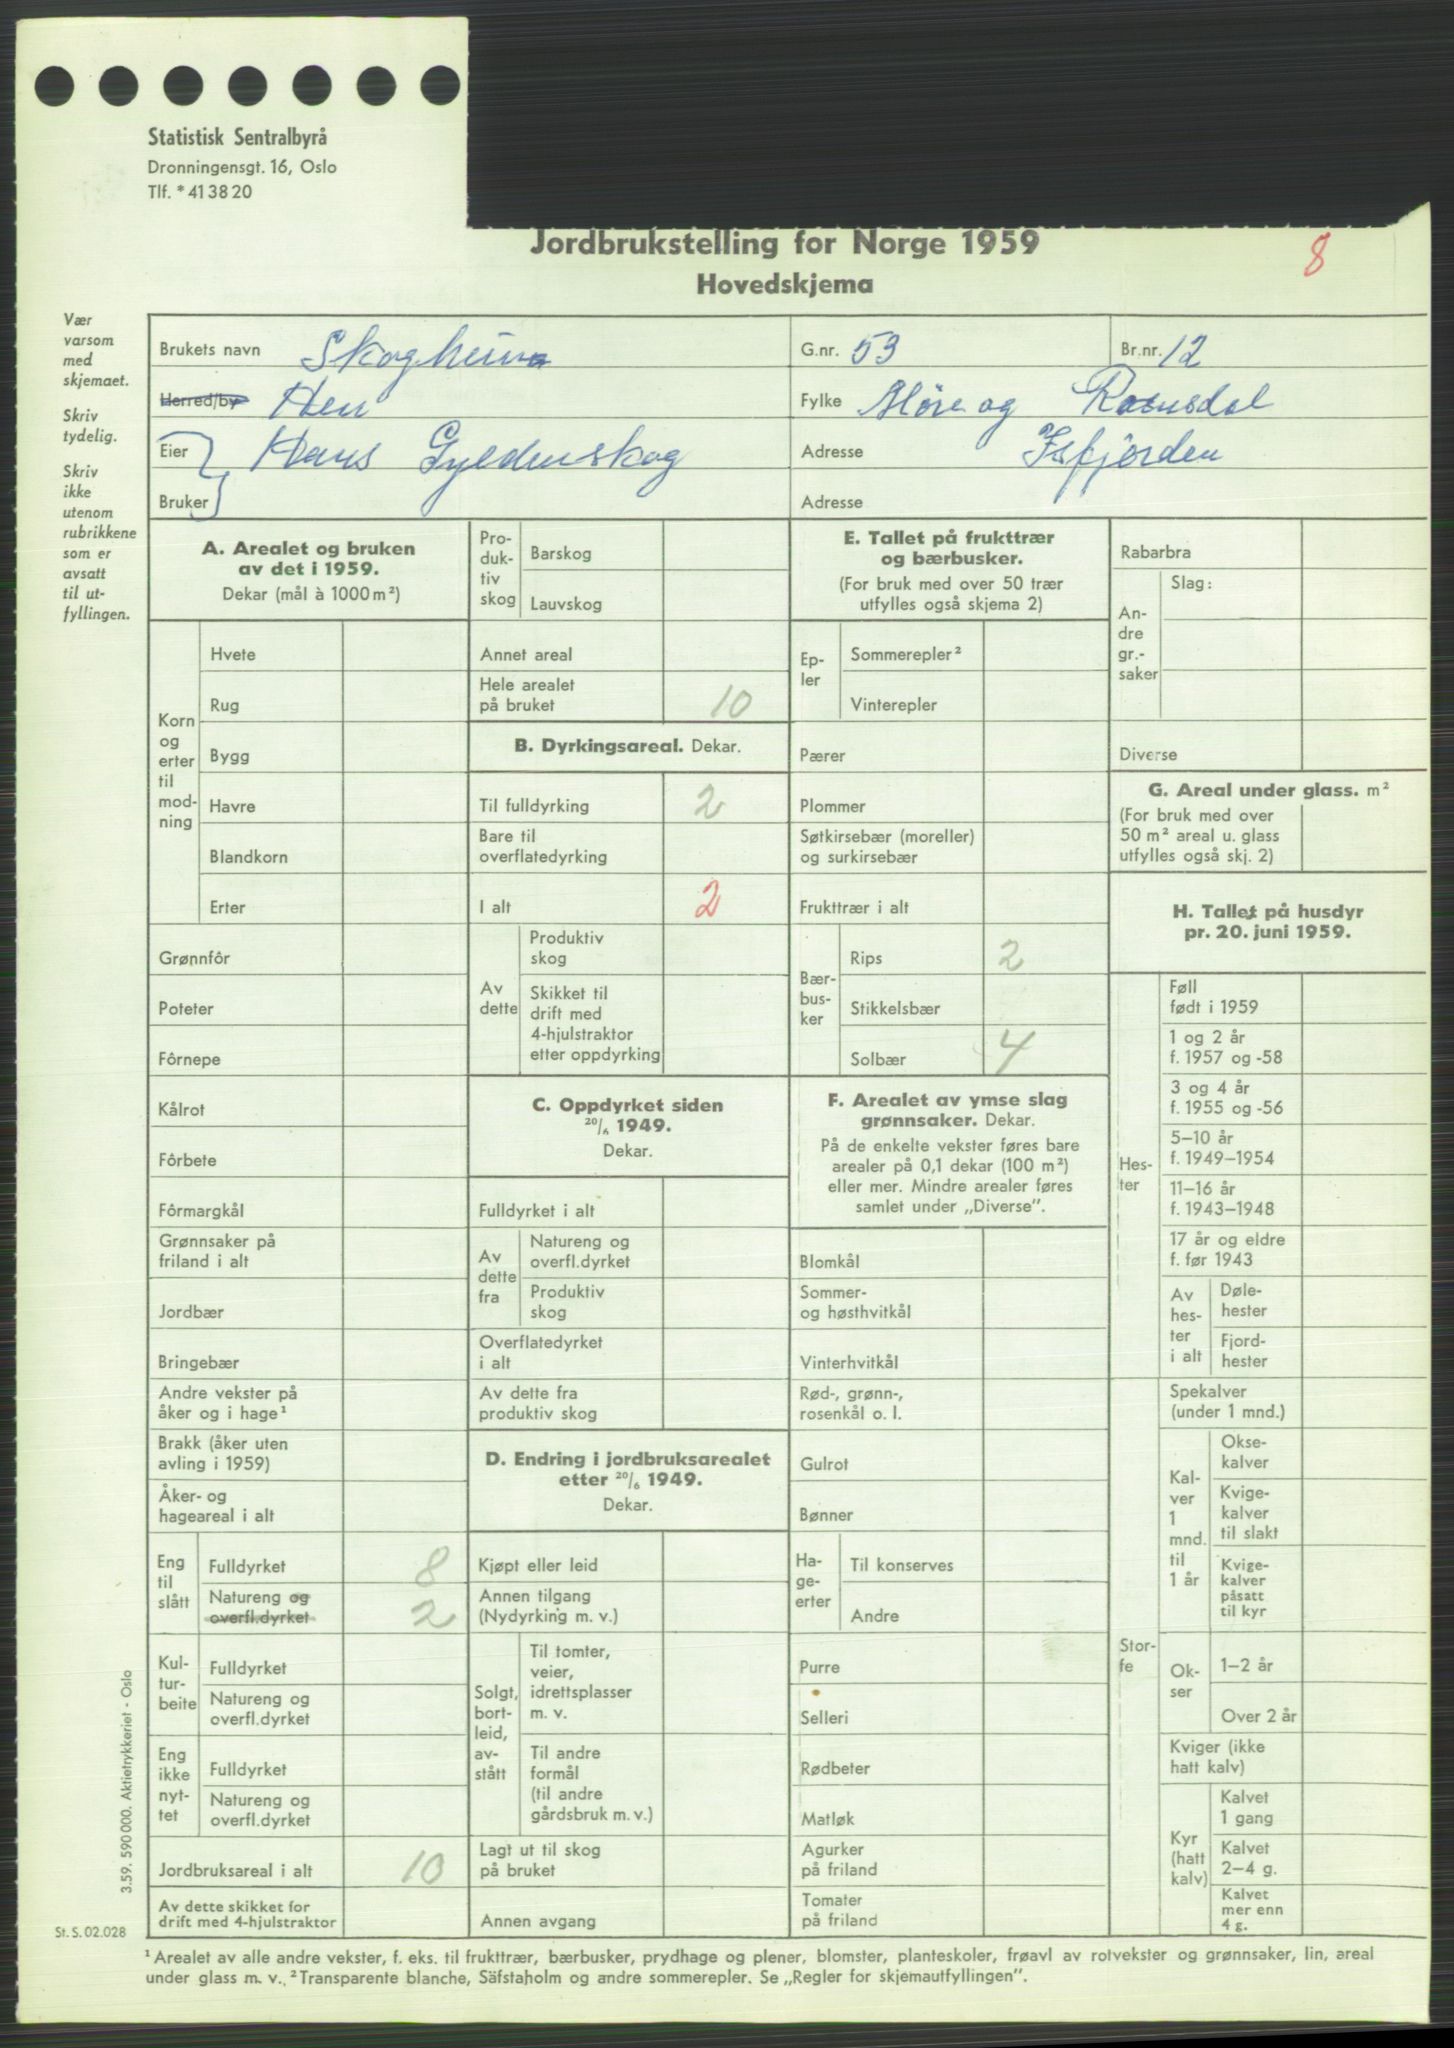 Statistisk Sentralbyrå
Dronningensgt. 16, Oslo
Tlf. *41 38 20
Jordbrukstelling for Norge 1959
8
Hovedskjema
Vær
varsom
med
skjemaet.
Skriv
tydelig.
Skriv
ikke
utenom
rubrikkene
som er
avsatt
til ut-
fyllingen.
Brukets navn Skogheim G.nr. 53 Br.nr. 12
Herred/by Hen Fylke Møre og Romsdal
Eier Hans Gyldenskog Adresse Isfjorden
Bruker Adresse
A. Arealet og bruken
av det i 1959.
Dekar (mål à 1000 m²)
Korn
og
erter
til
mod-
ning
Hvete
Rug
Bygg
Havre
Blandkorn
Erter
Grønnfôr
Poteter
Fôrnepe
Kålrot
Fôrbete
Fôrmargkål
Grønnsaker på
friland i alt
Jordbær
Bringebær
Andre vekster på
åker og i hage¹
Brakk (åker uten
avling i 1959)
Åker- og
hageareal i alt
Eng
til
slått
Fulldyrket 8
Natureng og
overfl.dyrket 2
Kul-
tur-
beite
Fulldyrket
Natureng og
overfl.dyrket
Eng
ikke
nyt-
tet
Fulldyrket
Natureng og
overfl.dyrket
Jordbruksareal i alt 10
Av dette skikket for
drift med 4-hjulstraktor
Pro-
duk-
tiv
skog
Barskog
Lauvskog
Annet areal
Hele arealet
på bruket 10
B. Dyrkingsareal. Dekar.
Til fulldyrking 2
Bare til
overflatedyrking
I alt 2
Av
dette
Produktiv
skog
Skikket til
drift med
4-hjulstraktor
etter oppdyrking
C. Oppdyrket siden
20/6 1949.
Dekar.
Fulldyrket i alt
Av
dette
fra
Natureng og
overfl.dyrket
Produktiv
skog
Overflatedyrket
i alt
Av dette fra
produktiv skog
D. Endring i jordbruksarealet
etter 20/6 1949.
Dekar.
Kjøpt eller leid
Annen tilgang
(Nydyrking m. v.)
Solgt,
bort-
leid,
av-
stått
Til tomter,
veier,
idrettsplasser
m. v.
Til andre
formål
(til andre
gårdsbruk m. v.)
Lagt ut til skog
på bruket
Annen avgang
E. Tallet på frukttrær
og bærbusker.
(For bruk med over 50 trær
utfylles også skjema 2)
Ep-
ler
Sommerepler²
Vinterepler
Pærer
Plommer
Søtkirsebær (moreller)
og surkirsebær
Frukttrær i alt
Bær-
bus-
ker
Rips 2
Stikkelsbær
Solbær 4
F. Arealet av ymse slag
grønnsaker. Dekar.
På de enkelte vekster føres bare
arealer på 0,1 dekar (100 m²)
eller mer. Mindre arealer føres
samlet under „Diverse”.
Blomkål
Sommer-
og høsthvitkål
Vinterhvitkål
Rød-, grønn-,
rosenkål o. l.
Gulrot
Bønner
Ha-
ge-
erter
Til konserves
Andre
Purre
Selleri
Rødbeter
Matløk
Agurker
på friland
Tomater
på friland
Rabarbra
An-
dre
gr.-
saker
Slag:
Diverse
G. Areal under glass. m²
(For bruk med over
50 m² areal u. glass
utfylles også skj. 2)
H. Tallet på husdyr
pr. 20. juni 1959.
Hes-
ter
Føll
født i 1959
1 og 2 år
f. 1957 og -58
3 og 4 år
f. 1955 og -56
5–10 år
f. 1949–1954
11–16 år
f. 1943–1948
17 år og eldre
f. før 1943
Av
hes-
ter
i alt
Døle-
hester
Fjord-
hester
Stor-
fe
Spekalver
(under 1 mnd.)
Kal-
ver
1
mnd.
til
1 år
Okse-
kalver
Kvige-
kalver
til slakt
Kvige-
kalver
påsatt
til kyr
Ok-
ser
1–2 år
Over 2 år
Kviger (ikke
hatt kalv)
Kyr
(hatt
kalv)
Kalvet
1 gang
Kalvet
2–4 g.
Kalvet
mer enn
4 g.
3.59. 590 000. Aktietrykkeriet - Oslo
St. S. 02.028
¹ Arealet av alle andre vekster, f. eks. til frukttrær, bærbusker, prydhage og plener, blomster, planteskoler, frøavl av rotvekster og grønnsaker, lin, areal
under glass m. v. ² Transparente blanche, Säfstaholm og andre sommerepler. Se „Regler for skjemautfyllingen”.